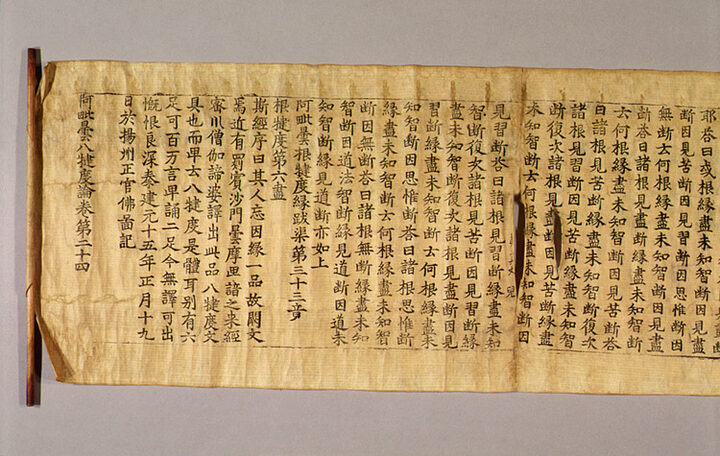 耶答曰或根緣盡未知智斷
斷因見習斷因思惟斷因
無斷去何根緣盡未知智斷因見盡
斷答曰諸根見盡斷緣盡未知智斷
去何根緣盡未知智斷因見苦斷答
曰諸根見苦斷緣盡未知智斷復次
諸根見習斷因見苦斷緣盡未知智
斷復次諸根見盡斷因見苦斷緣盡
未知智斷去何根緣盡未知智斷因
見習斷答曰諸根見習斷緣盡未知
智斷復次諸根見苦斷因見習斷緣
盡未知智斷復次諸根見盡斷因見
習斷緣盡未知智斷去何根緣盡未
知智斷因思惟斷答曰諸根思惟斷
緣盡未知智斷去何根緣盡未知智
斷因無斷答曰諸根無斷緣盡未知
智斷因道法智斷緣見道斷因道未
知智斷緣見道斷亦如上
阿毗曇根揵度緣跋渠第三十三竟
根揵度第六盡
斯經序曰其人忘因緣一品故闕文
焉近有罽賓沙門曇摩卑諳之來經
密川僧伽諦婆譯出此品八揵度文
具也而卑云八揵度是體耳別有六
足可百万言卑誦二足今無譯可出
慨恨良深秦建元十五年正月十九
日於揚州正官佛圖記
阿毗曇八揵度論卷第二十四